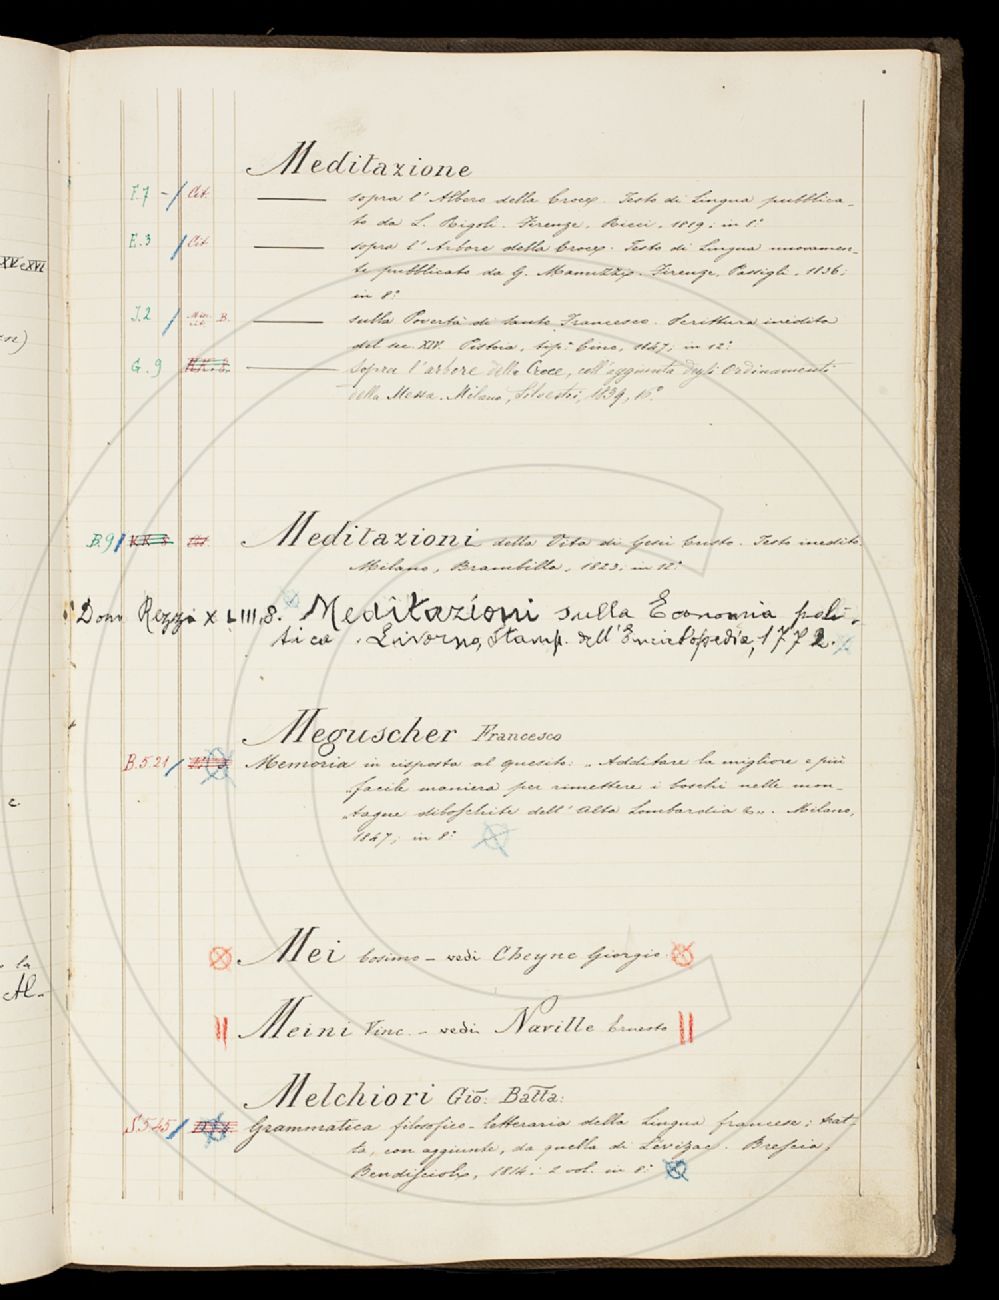 Meditazione
F.7 - / Cit — sopra l' Albero della Croce. Testo di Lingua pubblica-
to da L. Rigoli. Firenze, Ricci, 1819; in 8°
E.3 / Cit — sopra l' Arbore della Croce. Testo di Lingua nuovamen-
te pubblicato da G. Manuzzi. Firenze, Passigli, 1836;
in 8°
J.2 / B. — sulla Povertà di santo Francesco. Scrittura inedita
del sec. XIV. Pistoia, tip. Cino, 1847; in 12°
G.9 — Sopra l'arbore della Croce, coll'aggiunta degli Ordinamenti
della Messa. Milano, Silvestri, 1839, 16°
B.9 / Meditazioni della Vita di Gesù Cristo. Testo inedito.
Milano, Brambilla, 1823; in 12°
Dono Rezzi X LIII,8. Meditazioni sulla Economia poli-
tica. Livorno, Stamp. dell'Enciclopedia, 1772.
Meguscher Francesco
B.521 / Memoria in risposta al quesito: „Additare la migliore e più
„facile maniera per rimettere i boschi nelle mon-
„tagne diboschite dell' Alta Lombardia &„. Milano,
1847; in 8°
Mei Cosimo - vedi Cheyne Giorgio
Meini Vinc. - vedi Naville Ernesto
Melchiori Gio: Batta:
S.545 / Grammatica filosofico-letteraria della Lingua francese; trat-
ta, con aggiunte, da quella di Levizac. Brescia,
Bendiscioli, 1814: 2 vol. in 8°
XV e XVI
c
la
Al.